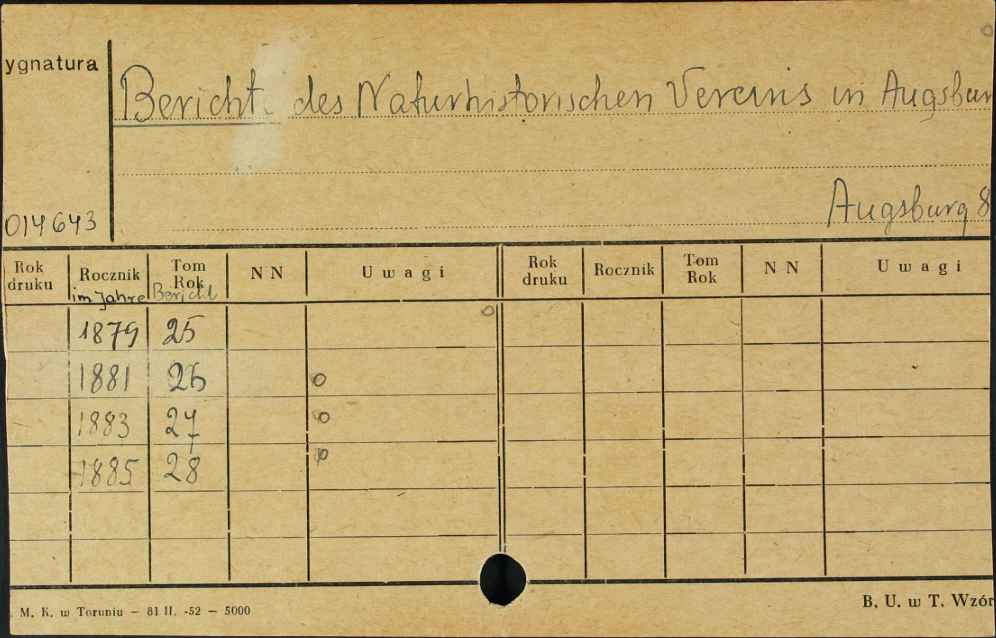 ygnatura
Bericht des Naturhistorischen Vereins in Augsbur
014643
Augsburg 8
Rok druku Rocznik Tom Rok N N Uwagi Rok druku Rocznik Tom Rok N N Uwagi
im Jahre Bericht
1879 25
1881 26
1883 27
1885 28
. M. K. w Toruniu — 81 II. -52 — 5000
B. U. w T. Wzór